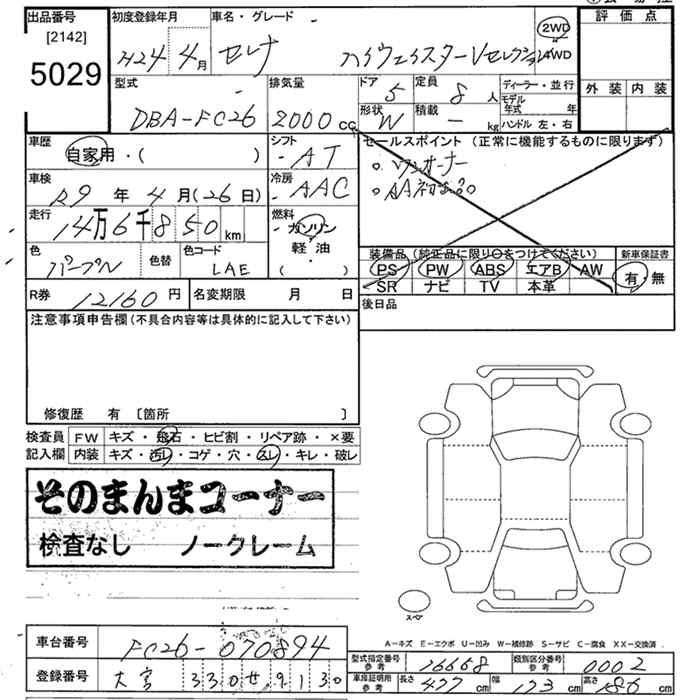 出品番号 初度登録年月 車名・グレード 評価点
[2142]
5029
H24年 4月 セレナ ハイウェイスターVセレクション 2WD 4WD
型式 排気量 ドア 定員 ディーラー・並行 外装 内装
DBA-FC26 2000cc 5 8人 モデル年式 年
形状 W 積載 - kg ハンドル 左・右
車歴 シフト セールスポイント(正常に機能するものに限ります)
自家用・( ) AT 。ワンオーナー
車検 冷房 。AA初出品
R9年 4月(26日) AAC
走行 燃料
14万6千850km ガソリン
軽油
( )
色 色替 色コード 装備品(純正品に限り○をつけてください) 新車保証書
パープル LAE PS PW ABS エアB AW 有・無
SR ナビ TV 本革
R券 12160円 名変期限 月 日 後日品
注意事項申告欄(不具合内容等は具体的に記入して下さい)
修復歴 有 [箇所 ]
検査員 FW キズ・飛石・ヒビ割・リペア跡・×要
記入欄 内装 キズ・汚レ・コゲ・穴・スレ・キレ・破レ
そのまんまコーナー
検査なし ノークレーム
スペア
A-キズ E-エクボ U-凹み W-補修跡 S-サビ C-腐食 XX-交換済
車台番号 FC26-070894
登録番号 大宮 330せ9130
型式指定番号 参考 16668 類別区分番号 参考 0002
車庫証明所 参考 長さ 477cm 幅 173cm 高さ 186cm